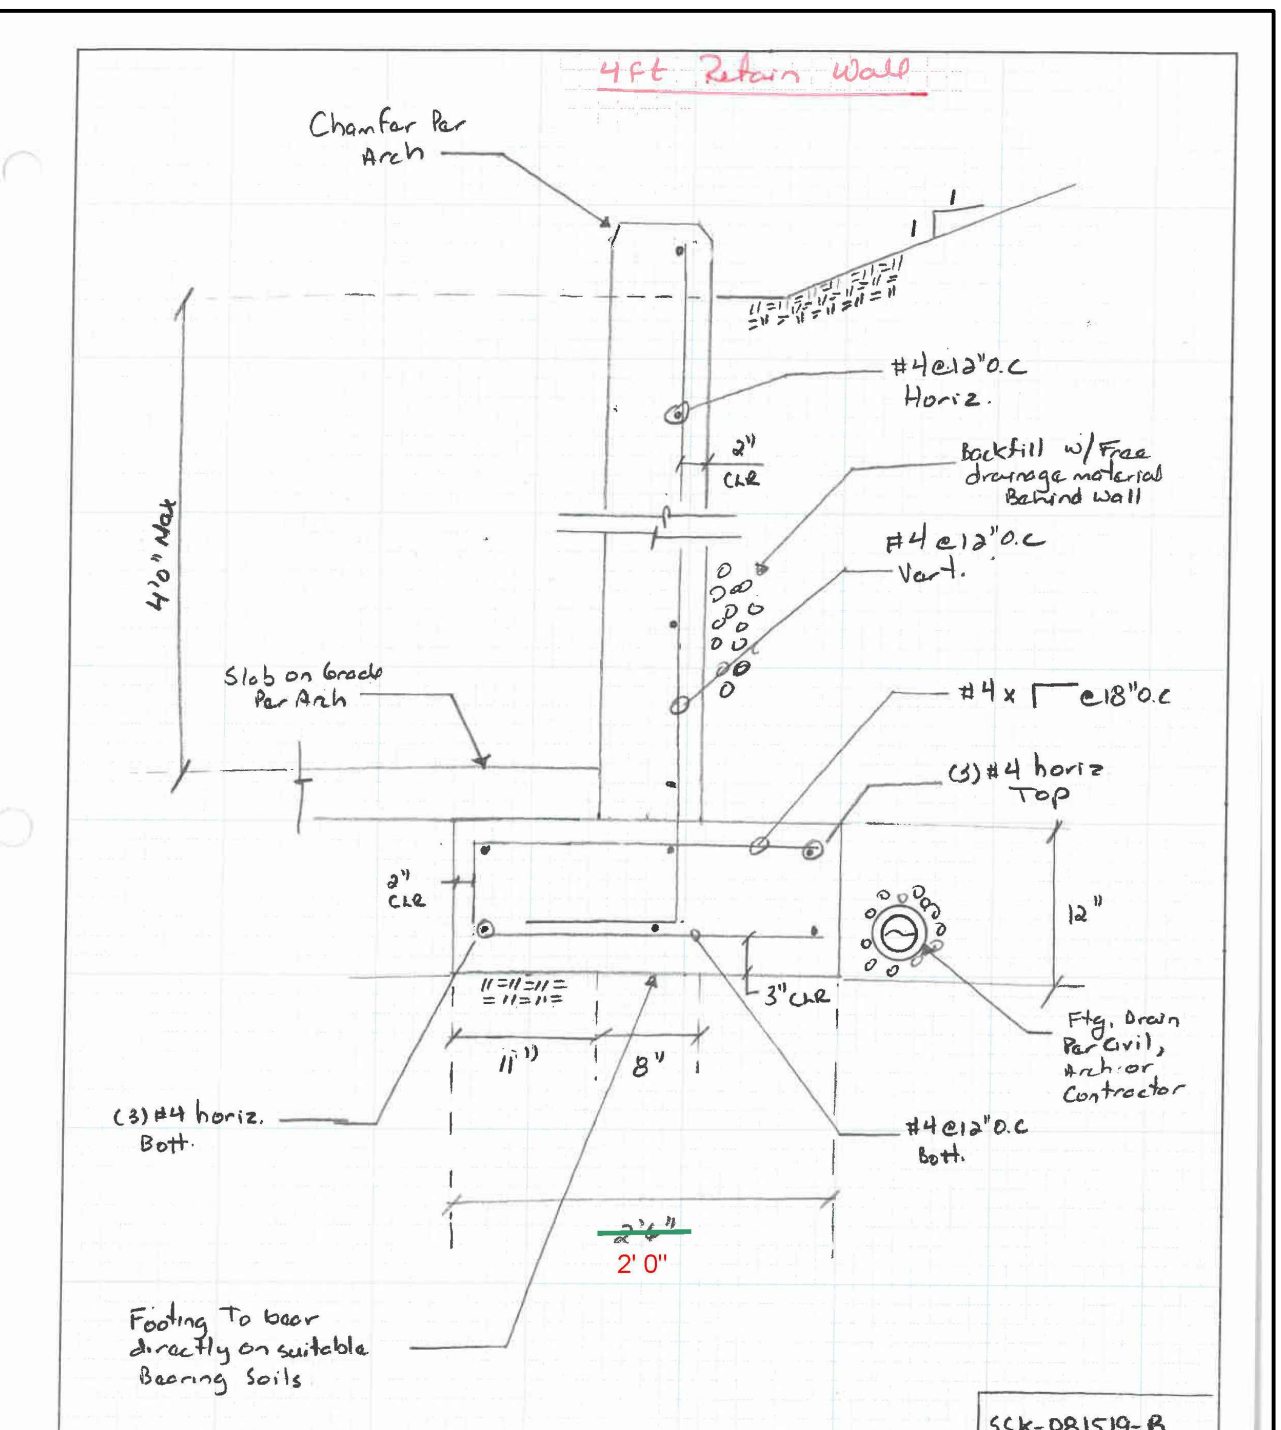 4Ft Retain Wall
Chamfer Per
Arch
1
1
#4@12"O.C
Horiz.
2"
CLR
Backfill w/ Free
drainage material
Behind Wall
#4@12"O.C
Vert.
4'0" Max
Slab on Grade
Per Arch
#4 x @18"O.C
(3)#4 horiz
Top
2"
CLR
12"
3" CLR
Ftg. Drain
Per Civil,
Arch. or
Contractor
11"
8"
(3)#4 horiz.
Bott.
#4@12"O.C
Bott.
2'6"
2' 0"
Footing To bear
directly on suitable
Bearing Soils
SCK-081519-B